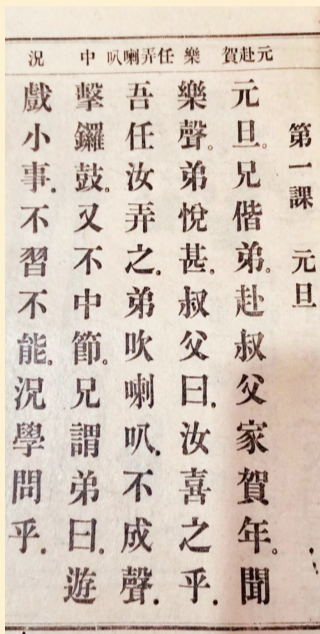 元赴賀 樂 任弄喇叭 中 況
第一課 元旦
元旦。兄偕弟。赴叔父家賀年。聞
樂聲。弟悅甚.叔父曰.汝喜之乎.
吾任汝弄之.弟吹喇叭.不成聲.
擊鑼鼓。又不中節。兄謂弟曰。遊
戲小事.不習不能。況學問乎.